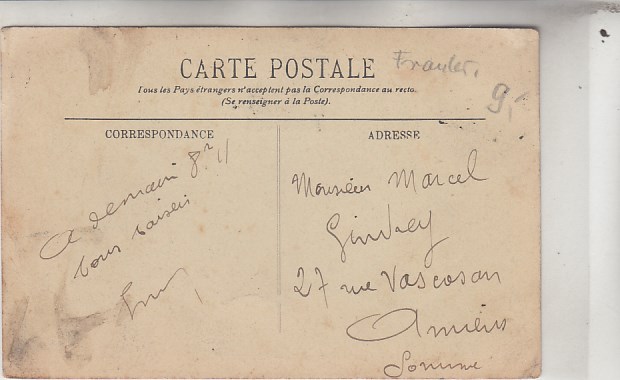 CARTE POSTALE
Tous les Pays étrangers n'acceptent pas la Correspondance au recto.
(Se renseigner à la Poste).
9,
CORRESPONDANCE
A demain 8h
bons baisers
ADRESSE
Monsieur Marcel
27 rue Vascosan
Amiens
Somme